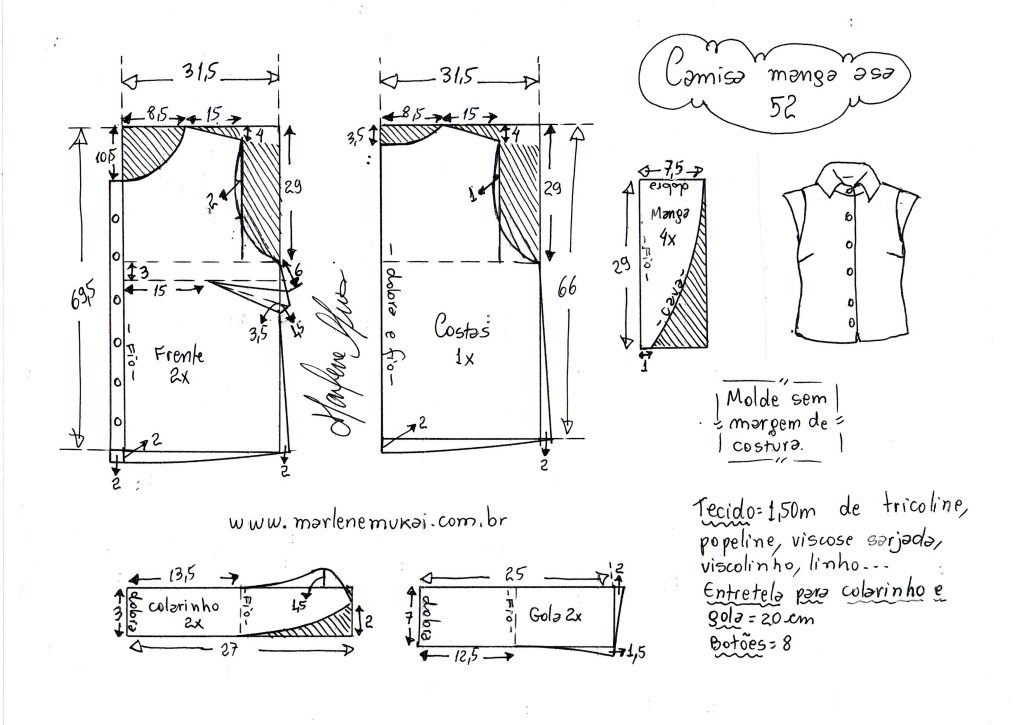 Camisa manga asa
52
31,5
8,5
15
4
10,5
29
2
3
6
15
3,5
1,5
69,5
Fio
Frente
2x
2
2
2
Marlene Mukai
31,5
8,5
15
3,5
4
1
29
66
dobra e fio
Costas
1x
2
2
7,5
dobra
Manga
4x
Fio
29
cava
1
Molde sem
margem de
costura.
www.marlenemukai.com.br
13,5
3
dobra
colarinho
2x
Fio
1,5
2
27
25
2
7
dobra
Fio
Gola 2x
12,5
1,5
Tecido=1,50m de tricoline,
popeline, viscose sarjada,
viscolinho, linho...
Entretela para colarinho e
gola = 20cm
Botões = 8